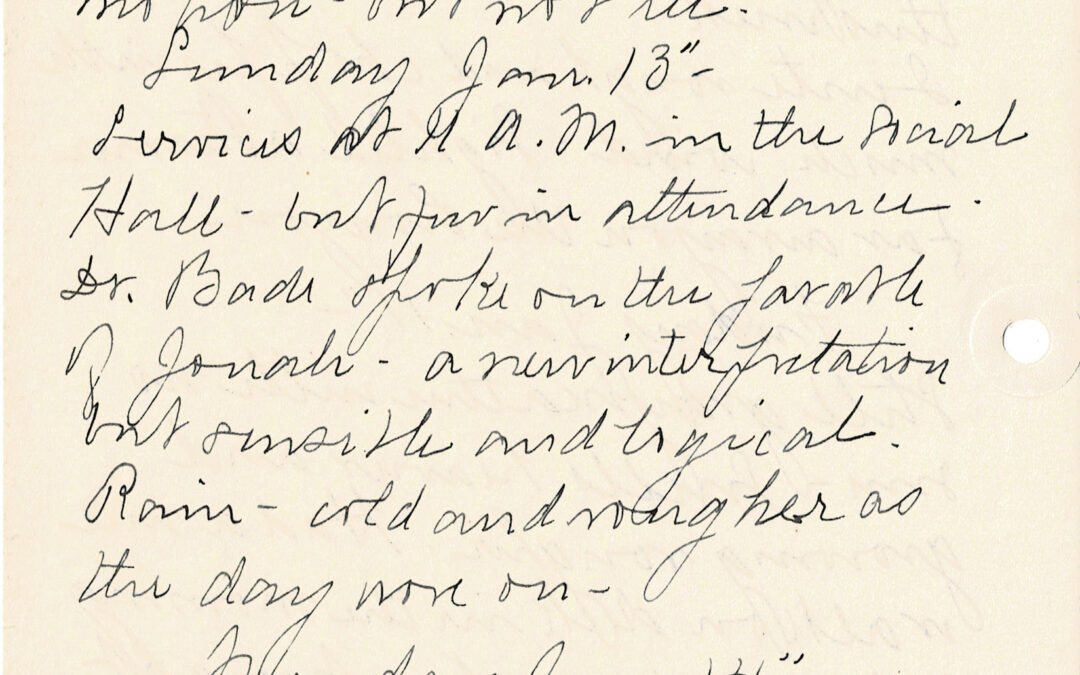 but not
Sunday Jan. 13"-
Services at 11 A.M. in the Social
Hall - but few in attendance.
Dr. Bade spoke on the parable
of Jonah - a new interpretation
but sensible and logical.
Rain - cold and rougher as
the day wore on -
Monday Jan. 14"